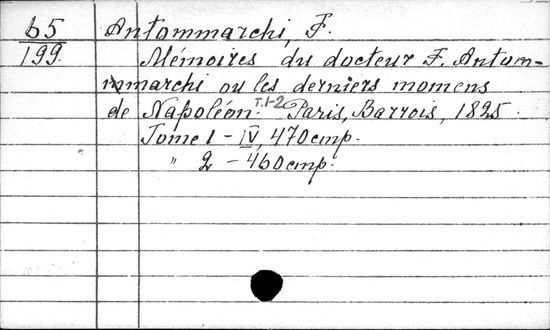 65 Antommarchi, F.
199. Mémoires du docteur F. Antom-
marchi ou les derniers momens
de Napoléon. T.1-2 Paris, Barrois, 1825.
Tome 1 - IV, 470 стр.
" 2 - 460 стр.